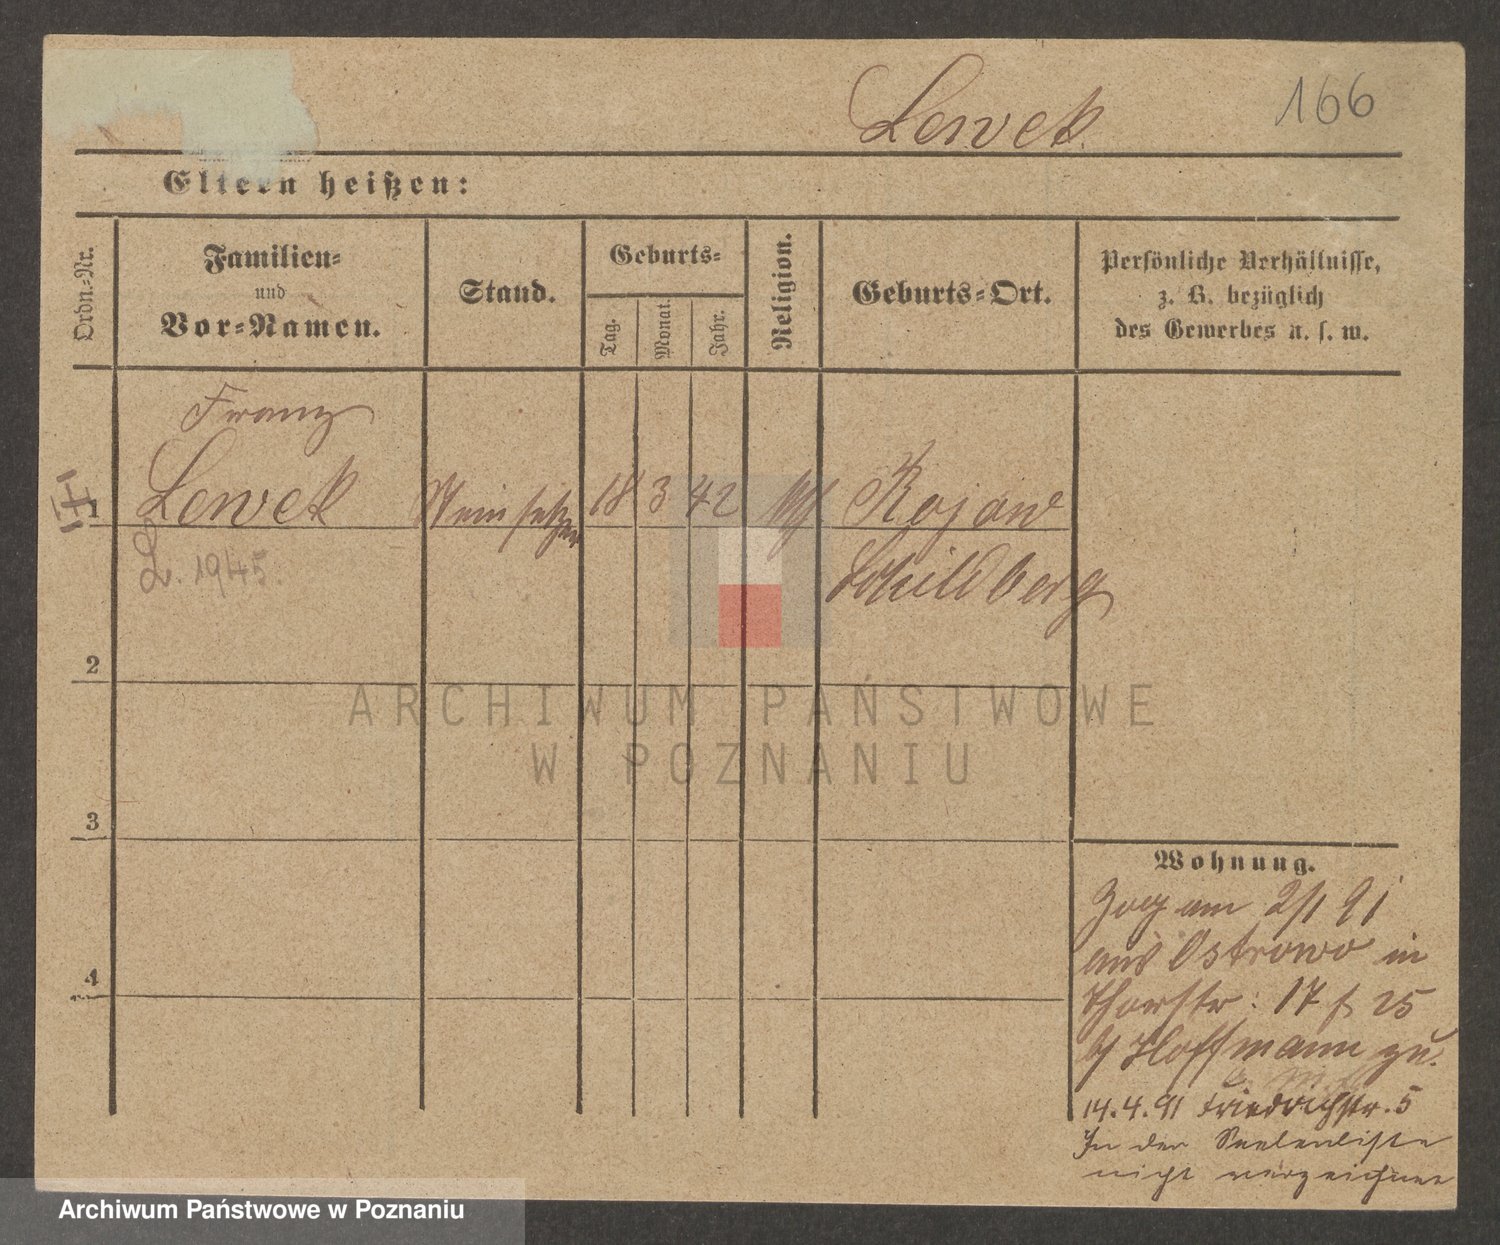 Lewek.
166
Eltern heißen:
Ordn.-Nr.
Familien-
und
Vor-Namen.
Stand.
Geburts-
Tag.
Monat.
Jahr.
Religion.
Geburts-Ort.
Persönliche Verhältnisse,
z. B. bezüglich
des Gewerbes u. s. w.
Franz
1
Lewek
Steinsetzer
18
3
42
Rojow
Schildberg
L. 1945.
2
3
4
ARCHIWUM PAŃSTWOWE
W POZNANIU
Wohnung.
Zog am 2/1 91
aus Ostrowo in
Thorstr: 17 25
b/ Hoffmann zu.
14.4.91 Friedrichstr. 5
In der Seelenliste
nicht verzeichnet
Archiwum Państwowe w Poznaniu